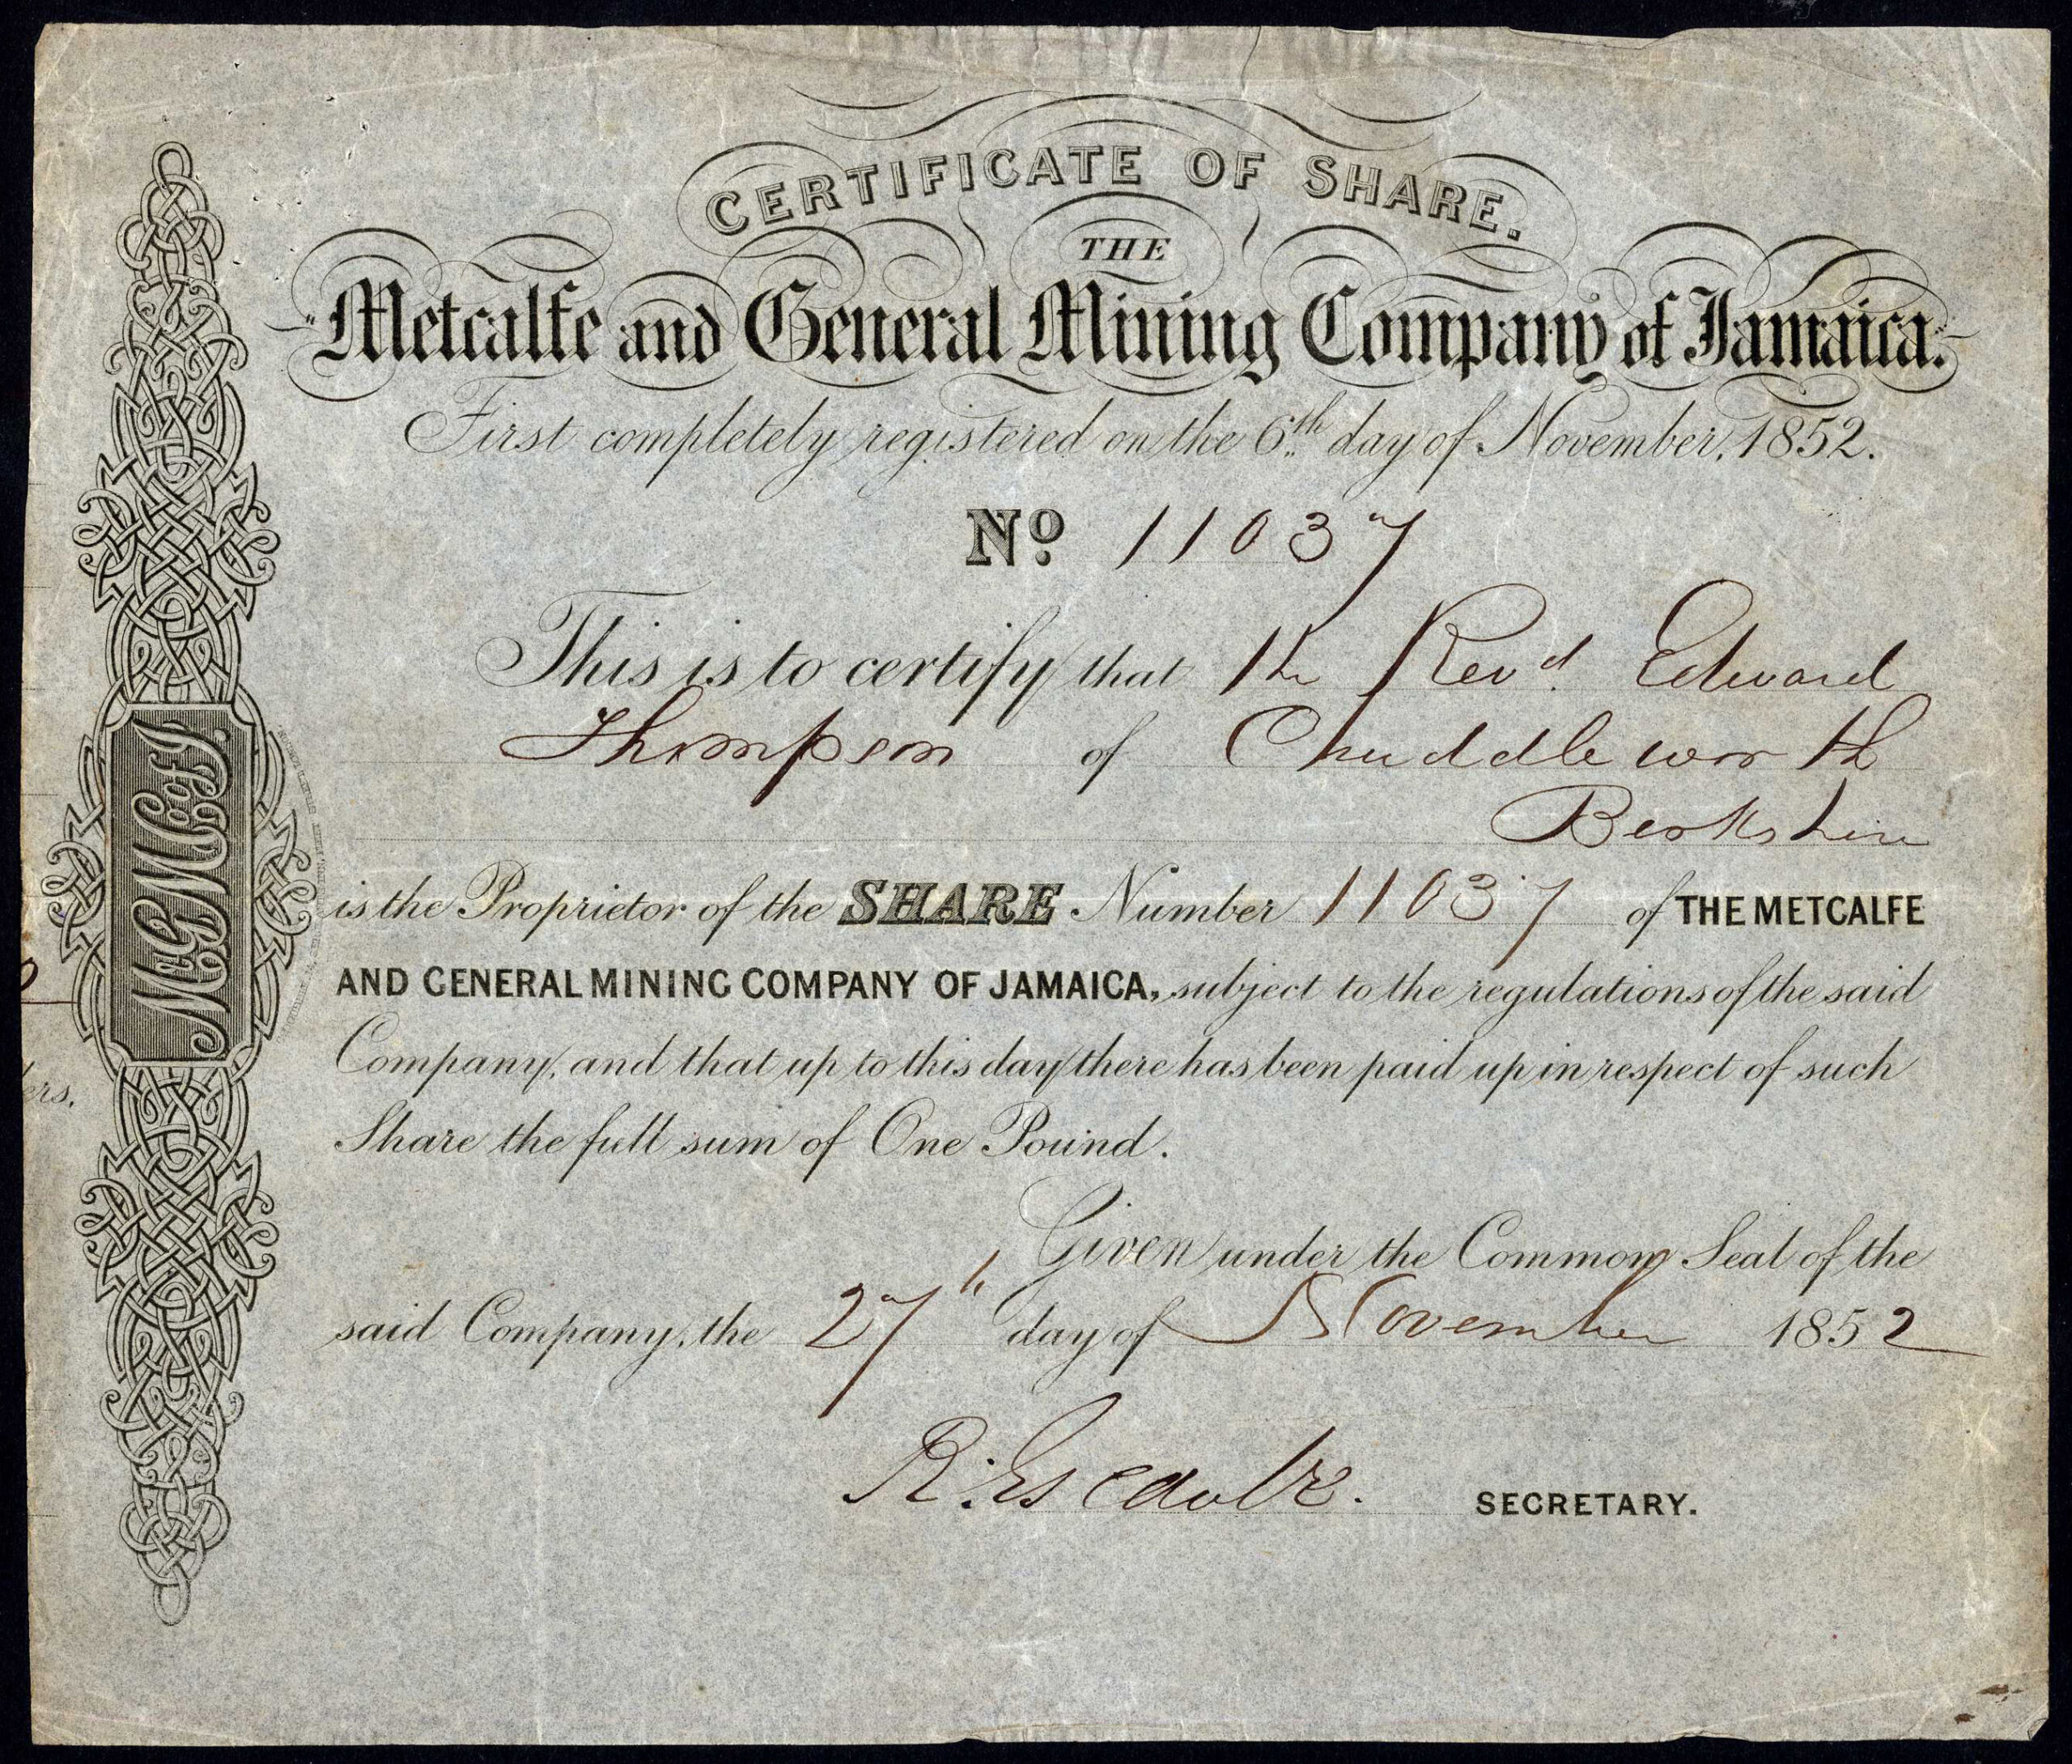 CERTIFICATE OF SHARE.
THE
"Metcalfe and General Mining Company of Jamaica."
First completely registered on the 6th day of November, 1852.
No 11037
This is to certify that The Revd. Edward
Thompson of Chuddleworth
Berkshire
is the Proprietor of the SHARE Number 11037 of THE METCALFE
AND GENERAL MINING COMPANY OF JAMAICA, subject to the regulations of the said
Company, and that up to this day there has been paid up in respect of such
Share the full sum of One Pound.
Given under the Common Seal of the
said Company, the 27" day of November 1852
R.
SECRETARY.
M&GMCoofJ.
ers.